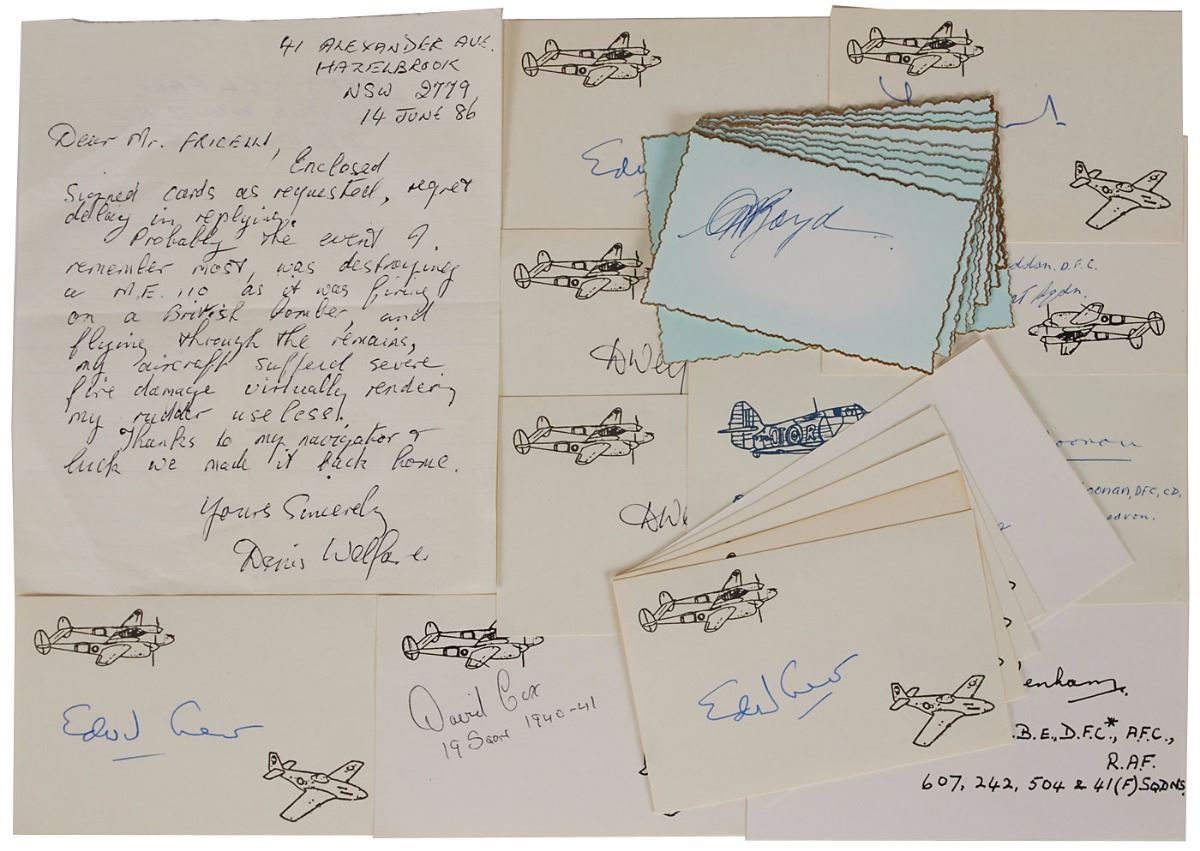 41 ALEXANDER AVE.
HAZELBROOK
NSW 2779
14 JUNE 86
Dear Mr. FRICELLI,
Enclosed
signed cards as requested, regret
delay in replying.
Probably the event I
remember most, was destroying
a M.E. 110 as it was firing
on a British bomber, and
flying through the remains,
my aircraft sufferd severe
fire damage virtually rendering
my rudder useless.
Thanks to my navigator &
luck we made it back home.
Yours Sincerely
Denis Welfare
Boyd
D.F.C.
DWe
DWe
OR
oonan
oonan, DFC, CD.
Edwd Crew
David Cox
19 Sqdn 1940-41
Edwd Crew
enham.
.B.E., D.F.C*., A.F.C.,
R.A.F.
607, 242, 504 & 41(F) SQDNS